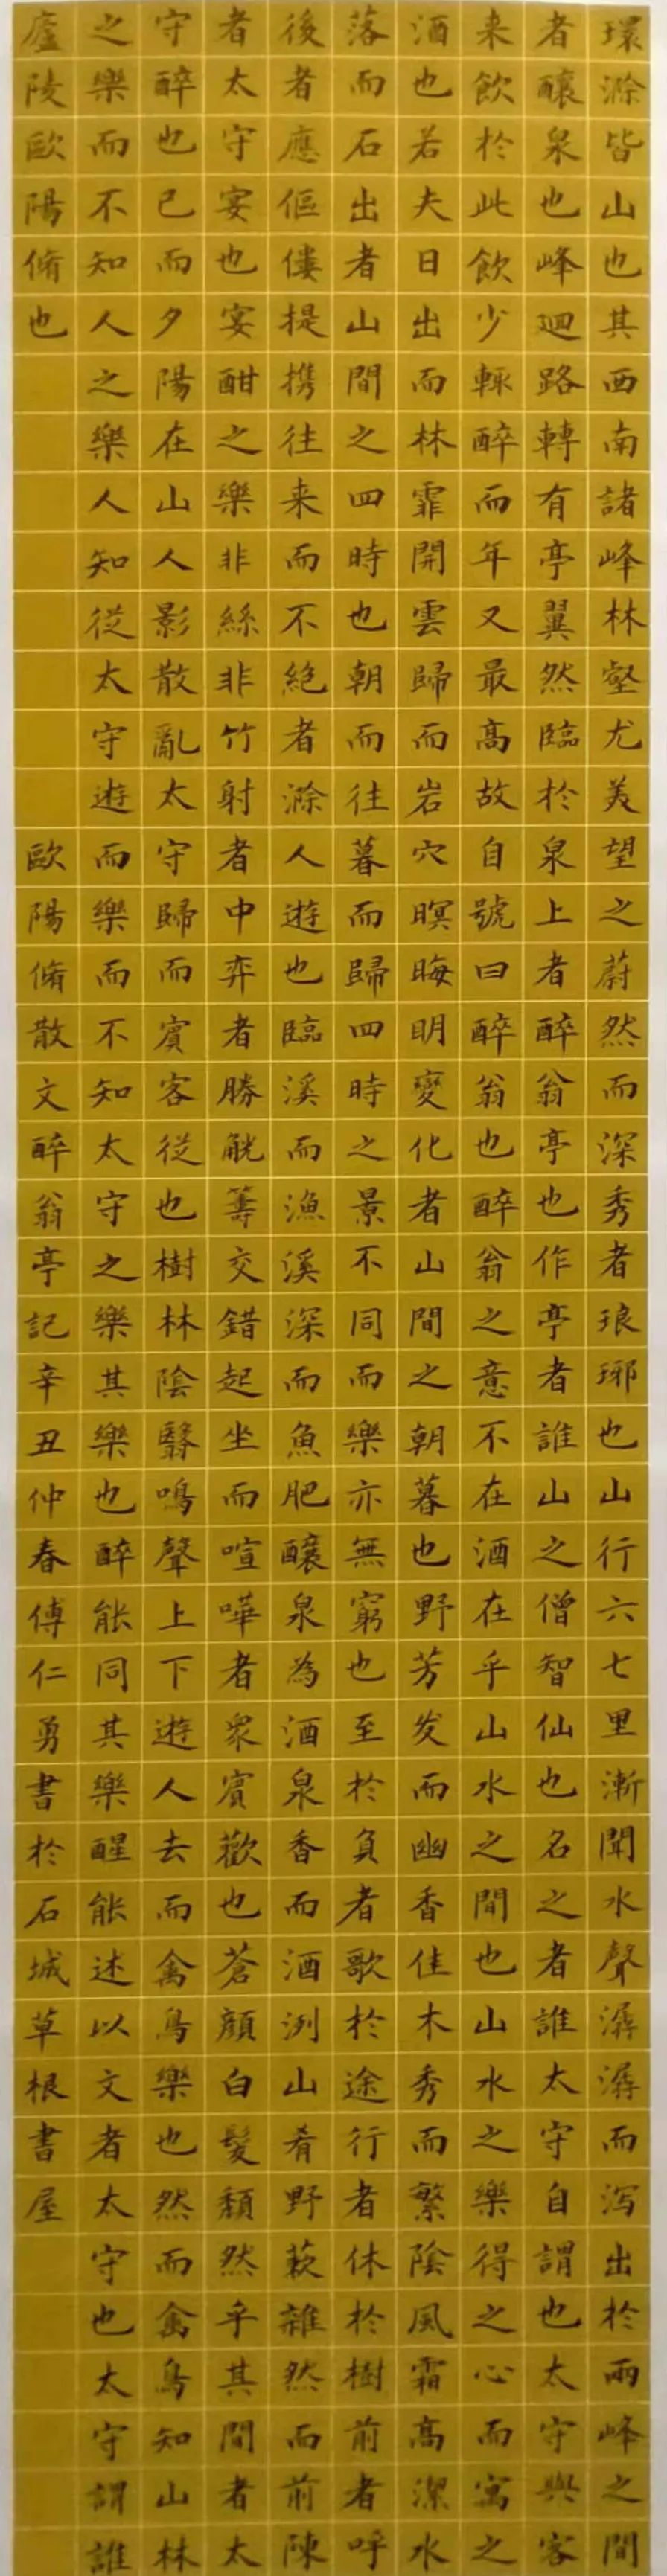 環滁皆山也其西南諸峰林壑尤美望之蔚然而深秀者琅琊也山行六七里漸聞水聲潺潺而泻出於兩峰之間
者釀泉也峰迴路轉有亭翼然臨於泉上者醉翁亭也作亭者誰山之僧智仙也名之者誰太守自謂也太守與客
来飲於此飲少輒醉而年又最高故自號曰醉翁也醉翁之意不在酒在乎山水之間也山水之樂得之心而寓之
酒也若夫日出而林霏開雲歸而岩穴暝晦明變化者山間之朝暮也野芳发而幽香佳木秀而繁陰風霜高潔水
落而石出者山間之四時也朝而往暮而歸四時之景不同而樂亦無窮也至於負者歌於途行者休於樹前者呼
後者應傴僂提携往来而不絶者滁人遊也臨溪而漁溪深而魚肥釀泉為酒泉香而酒洌山肴野蔌雜然而前陳
者太守宴也宴酣之樂非絲非竹射者中弈者勝觥籌交錯起坐而喧嘩者衆賓歡也蒼顏白髮頹然乎其間者太
守醉也已而夕陽在山人影散亂太守歸而賓客從也樹林陰翳鳴聲上下遊人去而禽鳥樂也然而禽鳥知山林
之樂而不知人之樂人知從太守遊而樂而不知太守之樂其樂也醉能同其樂醒能述以文者太守也太守謂誰
廬陵歐陽脩也 歐陽脩散文醉翁亭記辛丑仲春傅仁勇書於石城草根書屋